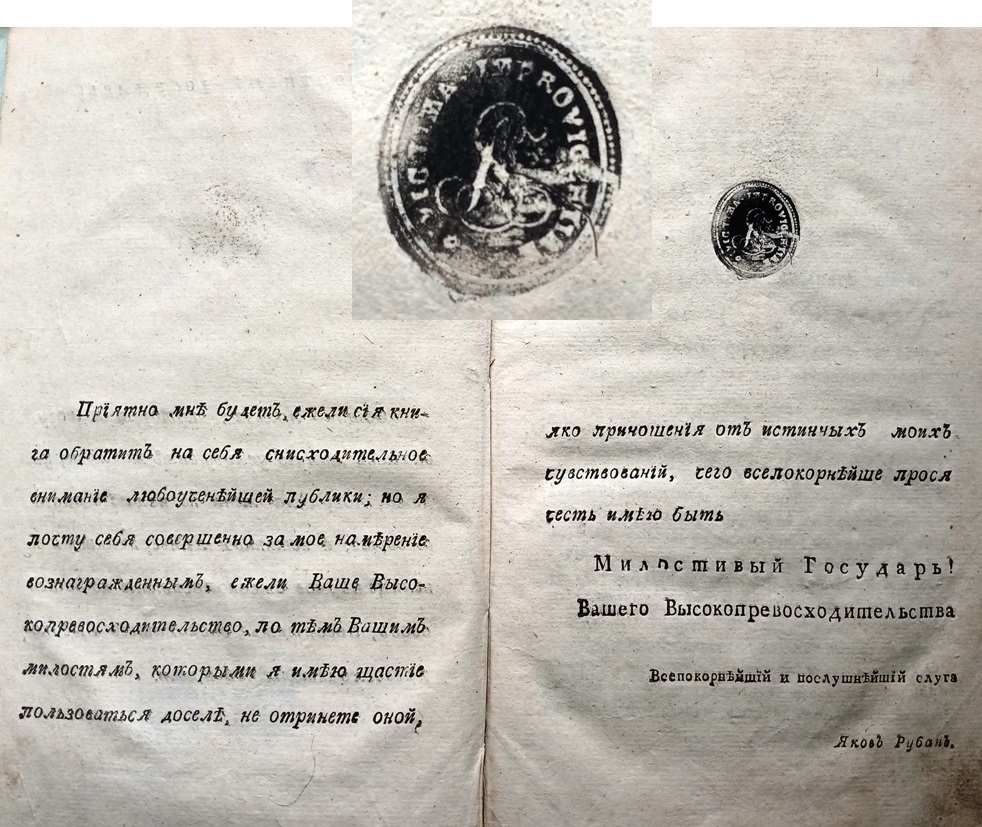 VICTIMA · IMPROVIDENTIÆ
Прїятно мнѣ будетъ, ежели сїя кни-
га обратитъ на себя снисходительное
вниманїе любоученѣйшей публики; но я
почту себя совершенно за мое намѣренїе
вознагражденнымъ, ежели Ваше Высо-
копревосходительство, по тѣмъ Вашимъ
милостямъ, которыми я имѣю щастїе
пользоваться доселѣ, не отринете оной,
яко приношенїя отъ истинныхъ моихъ
чувствованїй, чего всепокорнѣйше прося
честь имѣю быть
Милостивый Государь!
Вашего Высокопревосходительства
Всепокорнѣйшїй и послушнѣйшїй слуга
Яковъ Рубанъ.